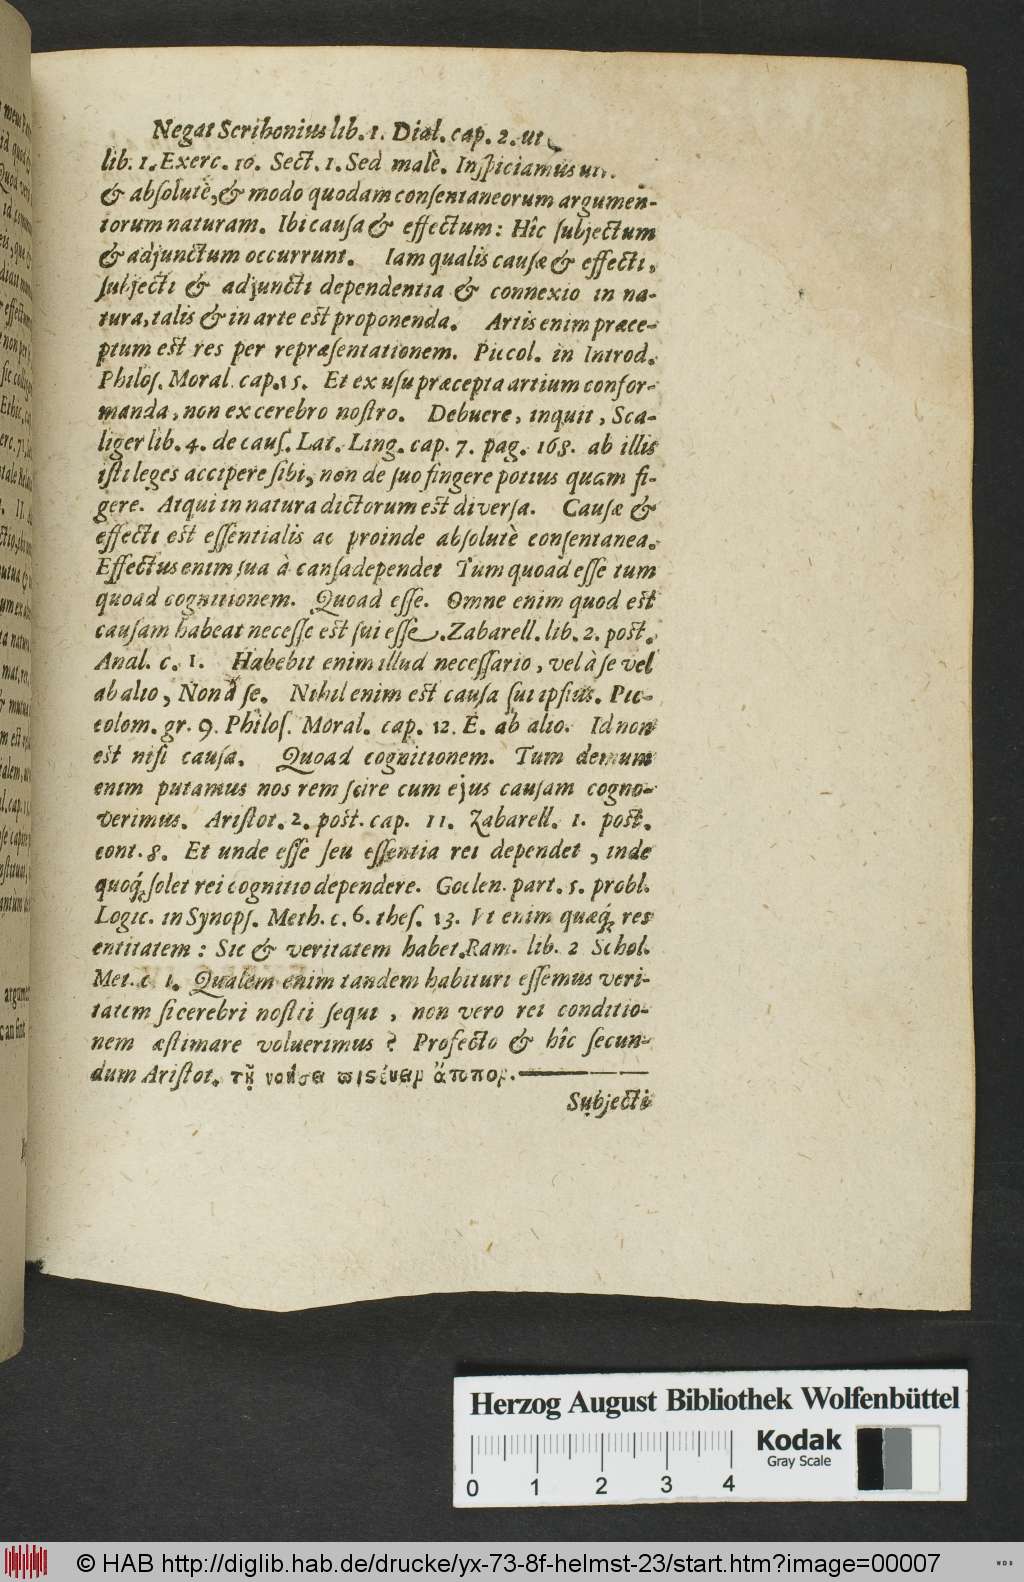 Negat Scribonius lib. 1. Dial. cap. 2. ut
lib. 1. Exerc. 10. Sect. 1. Sed malè. Inſpiciamus
& abſolutè, & modo quodam conſentaneorum argumen-
torum naturam. Ibi cauſa & effectum: Hîc ſubjectum
& adjunctum occurrunt. Iam qualis cauſæ & effecti,
ſubjecti & adjuncti dependentia & connexio in na-
tura, talis & in arte est proponenda. Artis enim præce-
ptum est res per repræſentationem. Piccol. in Introd.
Philoſ. Moral. cap. 15. Et ex uſu præcepta artium confor-
manda, non ex cerebro noſtro. Debuere, inquit, Sca-
liger lib. 4. de cauſ. Lat. Ling. cap. 7. pag. 168. ab illis
iſti leges accipere ſibi, non de ſuo fingere potius quam fi-
gere. Atqui in natura dictorum est diverſa. Cauſæ &
effecti est eſſentialis ac proinde abſolutè conſentanea.
Effectus enim ſua à canſa dependet Tum quoad eſſe tum
quoad cognitionem. Quoad eſſe. Omne enim quod est
cauſam habeat neceſſe est ſui eſſe. Zabarell. lib. 2. post.
Anal. c. 1. Habebit enim illud neceſſario, vel à ſe vel
ab alio, Non à ſe. Nihil enim est cauſa ſui ipſius. Pic-
colom. gr. 9. Philoſ. Moral. cap. 12. E. ab alio. Id non
est niſi cauſa. Quoad cognitionem. Tum demum
enim putamus nos rem ſcire cum ejus cauſam cogno-
verimus. Ariſtot. 2. post. cap. 11. Zabarell. 1. post.
cont. 8. Et unde eſſe ſeu eſſentia rei dependet, inde
quoq́; ſolet rei cognitio dependere. Goclen. part. 5. probl.
Logic. in Synopſ. Meth. c. 6. theſ. 13. Vt enim quæq́; res
entitatem: Sic & veritatem habet. Ram. lib. 2 Schol.
Met. c. 1. Qualem enim tandem habituri eſſemus veri-
tatem ſi cerebri noſtri ſequi, non vero rei conditio-
nem æſtimare voluerimus? Profecto & hîc ſecun-
dum Ariſtot.
Subjecti
Herzog August Bibliothek Wolfenbüttel
Kodak
Gray Scale
0 1 2 3 4
© HAB http://diglib.hab.de/drucke/yx-73-8f-helmst-23/start.htm?image=00007